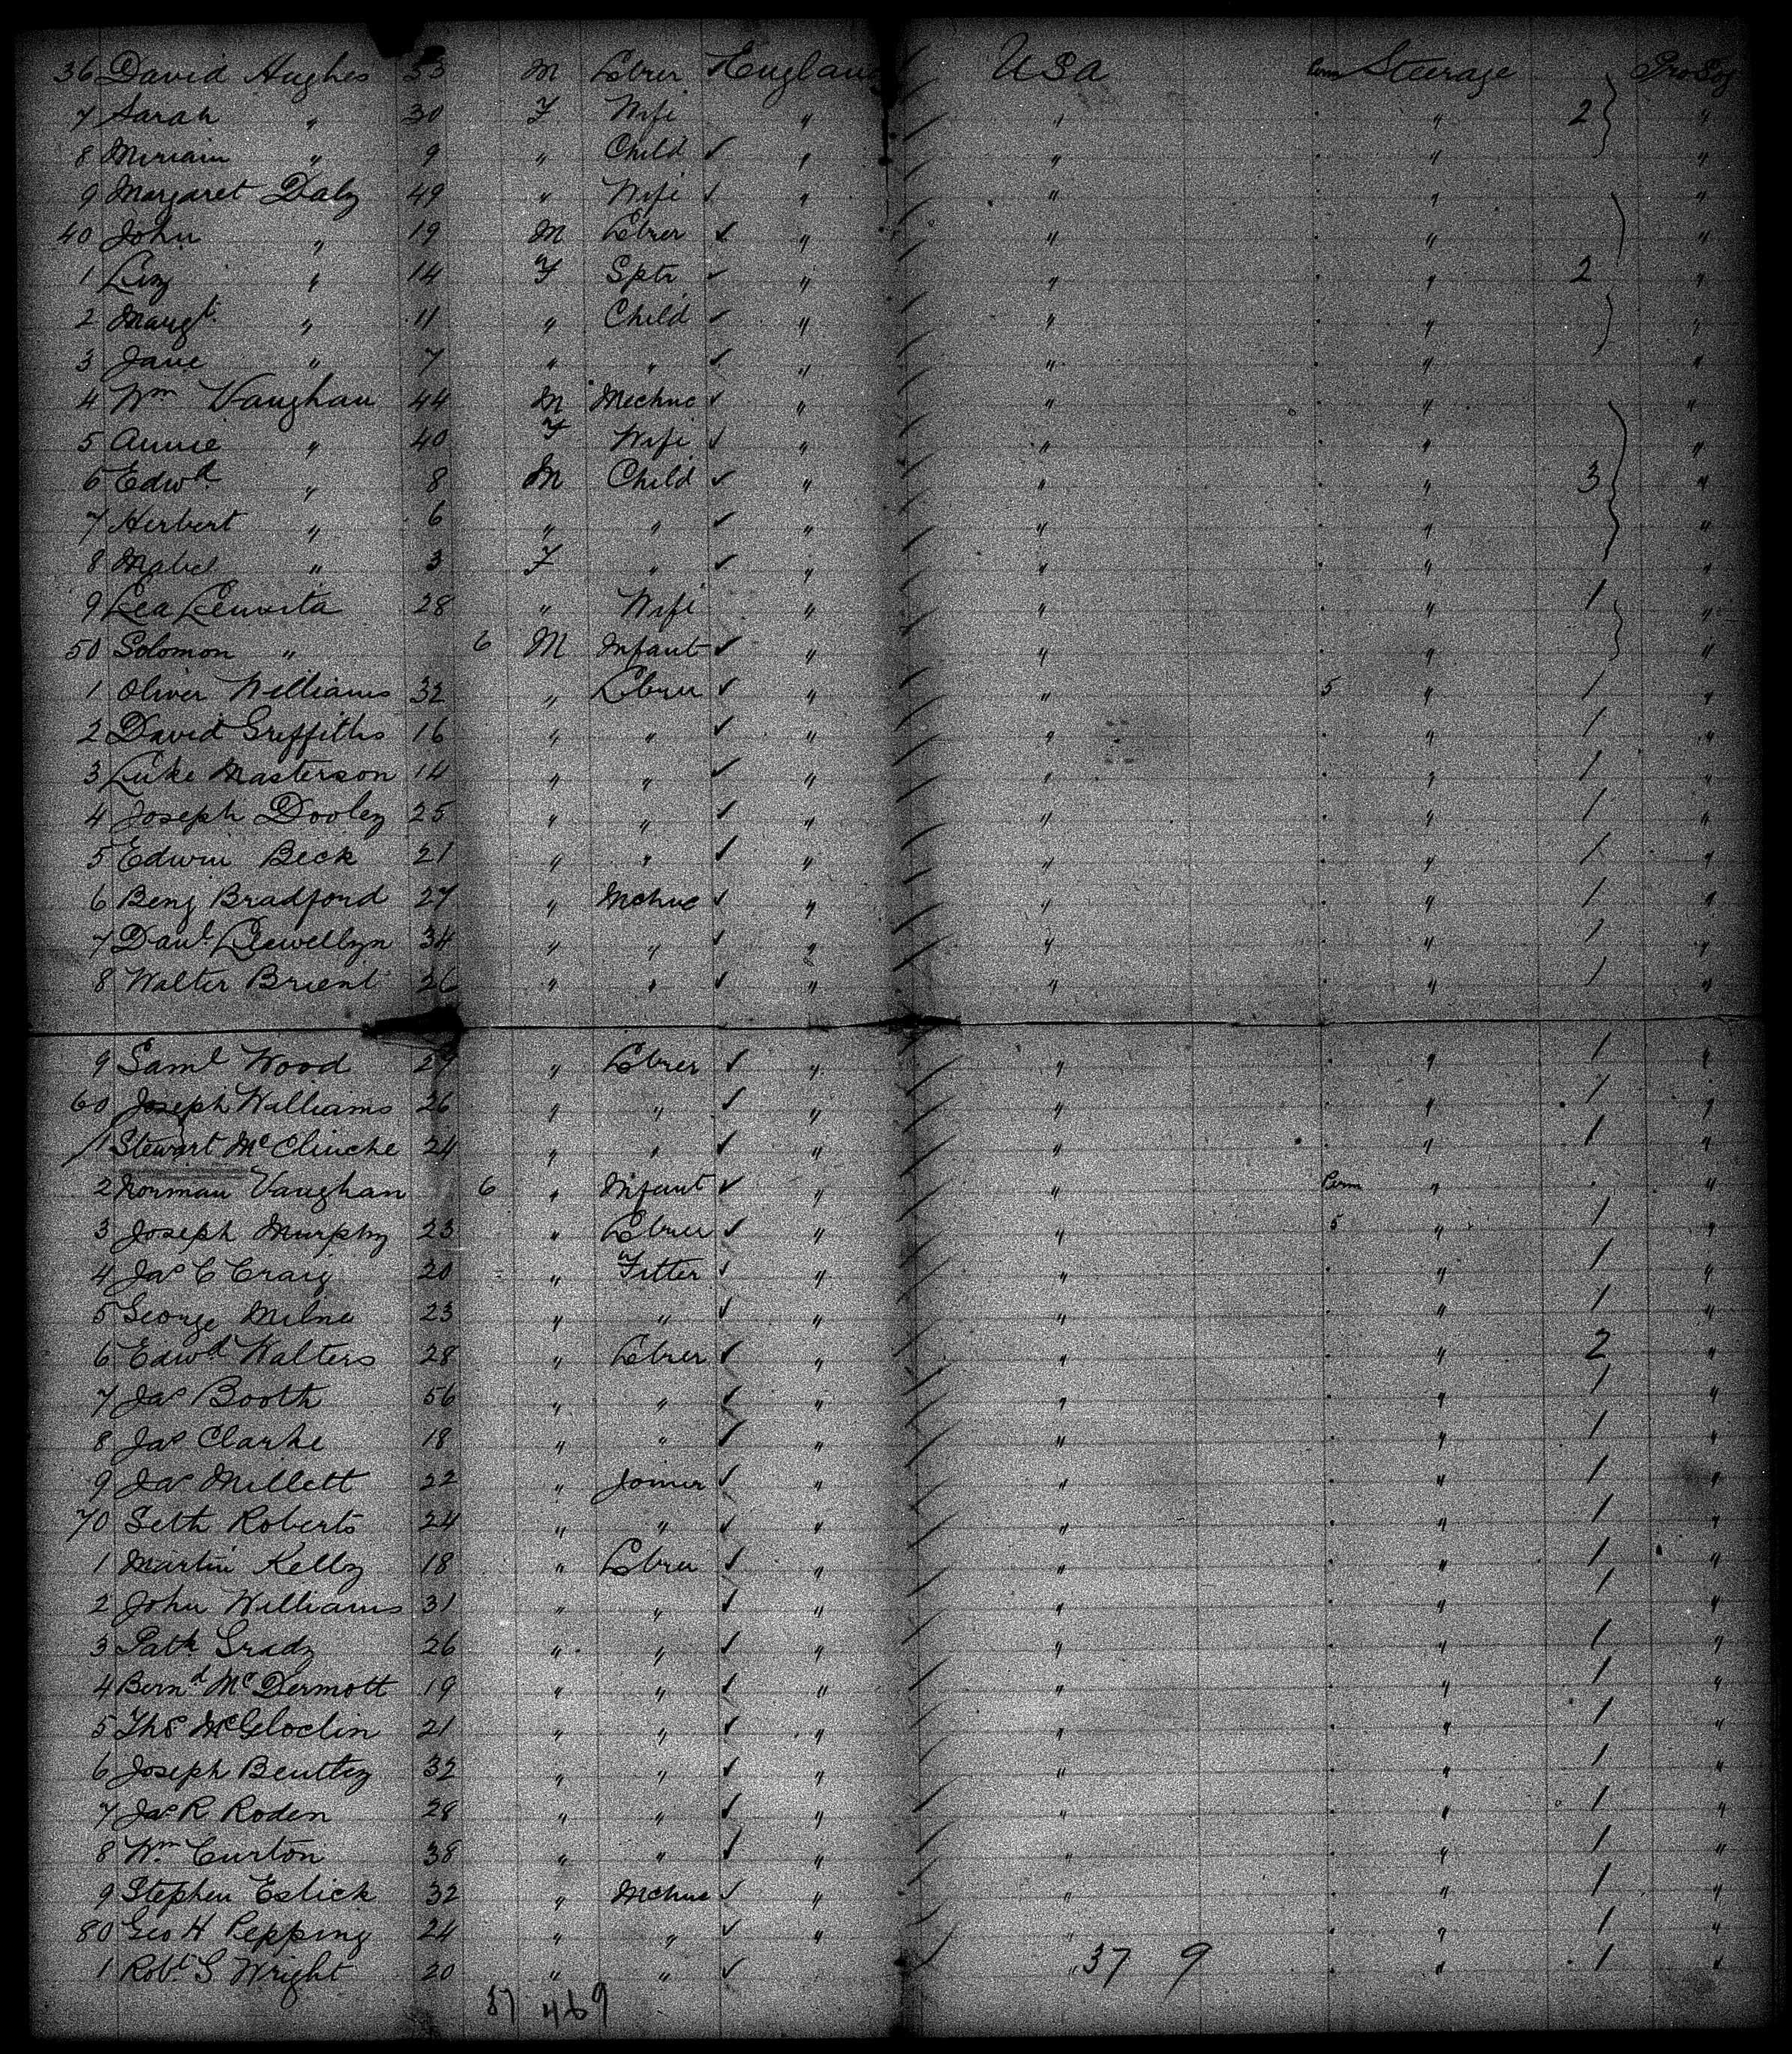 36 David Hughes 33 M Lbrer England USA Steerage
7 Sarah " 30 F Wife " " " 2 "
8 Miriam " 9 " Child " " " "
9 Margaret Daly 49 " Wife " " " "
40 John " 19 M Lbrer " " " "
1 Lizy " 14 F Sptr " " " 2 "
2 Margt " 11 " Child " " " "
3 Jane " 7 " " " " " "
4 Wm Vaughan 44 M Mechnc " " " "
5 Annie " 40 F Wife " " " "
6 Edwd " 8 M Child " " " 3 "
7 Herbert " 6 " " " " " "
8 Mabel " 3 F " " " " "
9 Lea 28 " Wife " " " 1 "
50 Solomon " 6 M Infant " " " "
1 Oliver Williams 32 " Lbrer " " 5 " 1 "
2 David Griffiths 16 " " " " " 1 "
3 Luke Masterson 14 " " " " " 1 "
4 Joseph Dooley 25 " " " " " 1 "
5 Edwin Beck 21 " " " " " 1 "
6 Benj Bradford 27 " Mchnc " " " 1 "
7 Danl Llewellyn 34 " " " " " 1 "
8 Walter Brient 26 " " " " " 1 "
9 Saml Wood 29 " Lbrer " " " 1 "
60 Joseph Williams 26 " " " " " 1 "
1 Stewart McClincke 24 " " " " " 1 "
2 Norman Vaughan 6 " Infant " " " "
3 Joseph Murphy 23 " Lbrer " " 5 " 1 "
4 Jas C Craig 20 " Fitter " " " 1 "
5 George Milne 23 " " " " " 1 "
6 Edwd Walters 28 " Lbrer " " " 2 "
7 Jas Booth 56 " " " " " 1 "
8 Jas Clarke 18 " " " " " 1 "
9 Jas Millett 22 " Joiner " " " 1 "
70 Seth Roberts 24 " " " " " 1 "
1 Martin Kelly 18 " Lbrer " " " 1 "
2 John Williams 31 " " " " " 1 "
3 Patk Grady 26 " " " " " 1 "
4 Bernd McDermott 19 " " " " " 1 "
5 Thos McGloclin 21 " " " " " 1 "
6 Joseph Bentley 32 " " " " " 1 "
7 Jas R Roden 28 " " " " " 1 "
8 Wm Curton 38 " " " " " 1 "
9 Stephen Eslick 32 " Mchnc " " " 1 "
80 Geo H Pepping 24 " " " " " 1 "
1 Robt G Wright 20 " " " 37 9 " 1 "
37 469